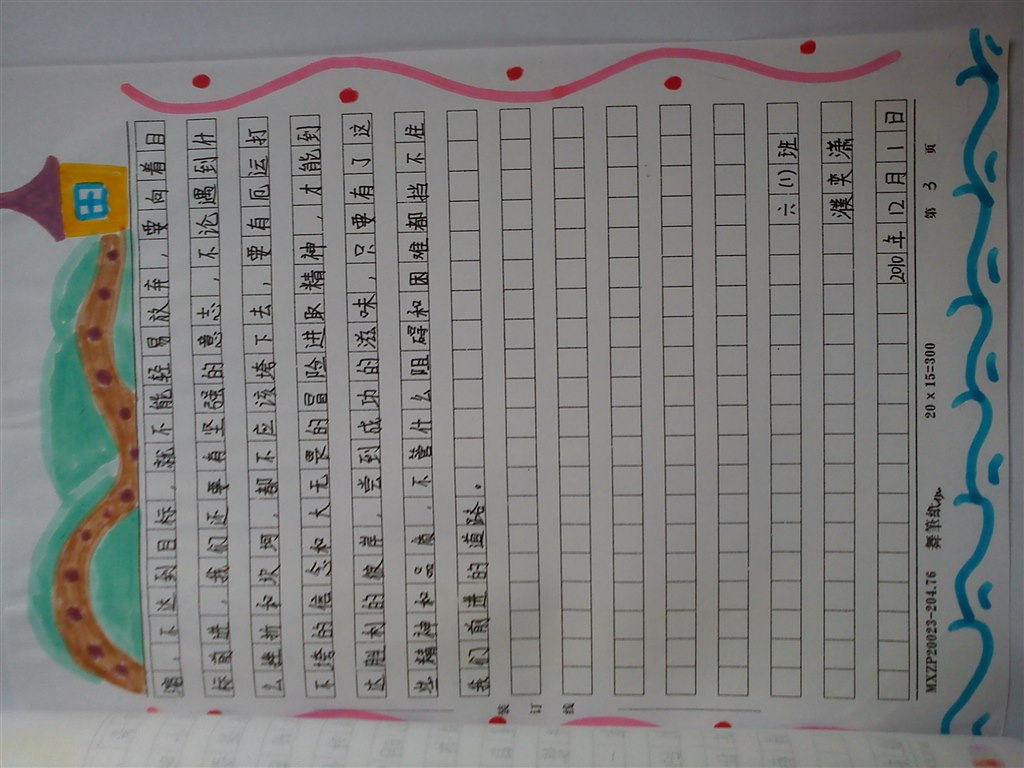 缩，不达到目标，就不能轻易放弃，要向着目
标前进，我们还要有坚强的意志，不论遇到什
么挫折和坎坷，都不应该垮下去，要有厄运打
不垮的信念和大无畏的冒险进取精神，才能到
达胜利的彼岸，尝到成功的滋味，只要有了这
些精神和品质，不管什么阻碍和困难都挡不住
我们前进的道路。
六(1)班
濮奕潇
2010年12月1日
装 订 线
MXZP20023-204.76 舞筆纸 20 x 15=300 第 3 页